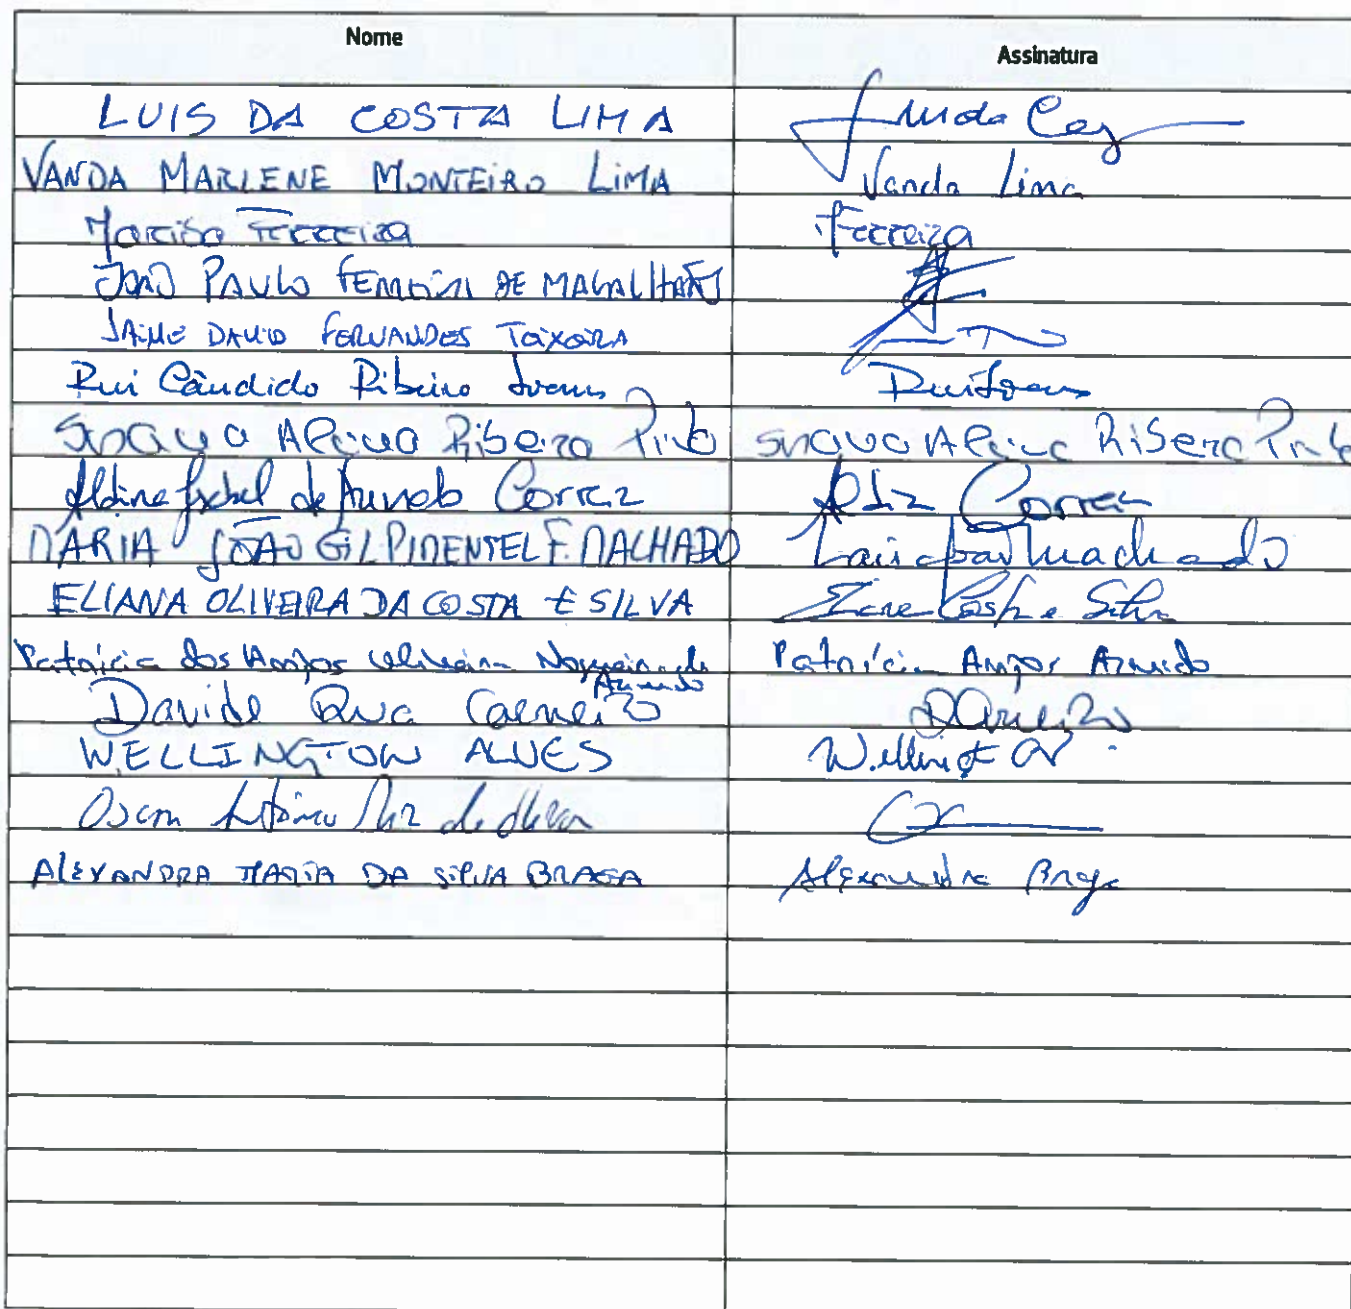 Nome Assinatura
LUIS DA COSTA LIMA
VANDA MARLENE MONTEIRO LIMA Vanda Lima
Marisa Ferreira Ferreira
JOÃO PAULO FERREIRA DE MAGALHÃES
JAIME DAVID FERNANDES TEIXEIRA
Rui Cândido Ribeiro
Ribeiro Pinto Ribeiro Pinto
Aldina Isabel de Azevedo Correia Correia
MARIA JOÃO GIL PIMENTEL F. MACHADO Machado
ELIANA OLIVEIRA DA COSTA E SILVA Costa e Silva
Patrícia dos Anjos Oliveira Nogueira de Azevedo Patrícia Anjos Azevedo
Davide Rua Carneiro DCarneiro
WELLINGTON ALVES
Oscar António de Oliveira
ALEXANDRA MARIA DA SILVA BRAGA Alexandra Braga